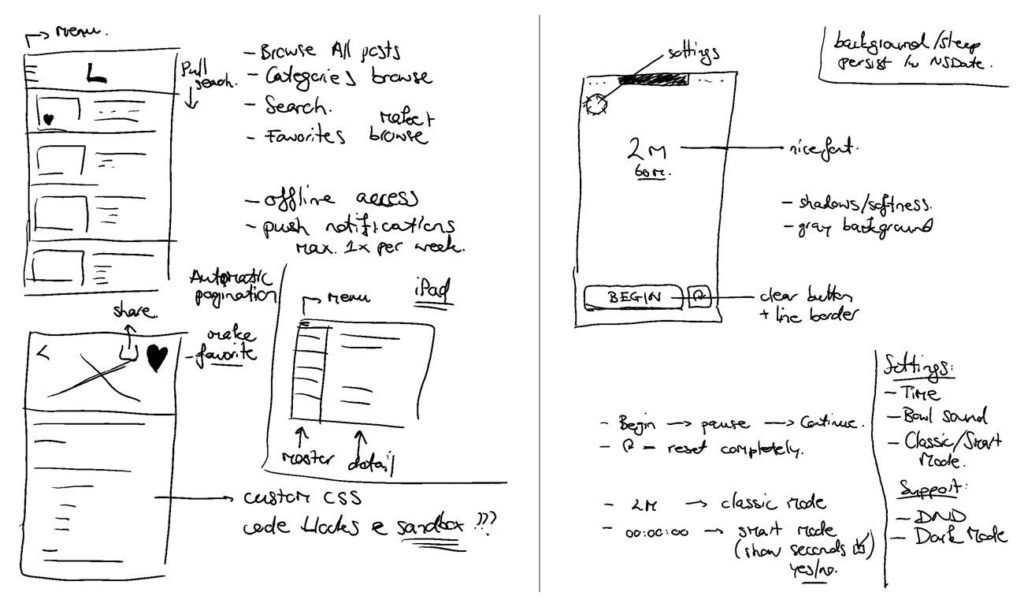 Menu.
L
Pull
seach.
- Browse All posts
- Categories browse
- Search.
- Favorites browse
- offline access
- push notifications
max. 1x per week.
Automatic
pagination
Menu
iPad
share
make
- favorite
<
master
detail
custom CSS
code blocks & sandbox ???
settings
background/sleep
persist in NSDate.
2M
60M.
nice font.
- shadows/softness.
- gray background
BEGIN
clear button
+ line border
- Begin → pause → Continue.
- reset completely.
- 2M → classic mode
- 00:00:00 → smart mode
(show seconds)
yes/no.
Settings:
- Time
- Bowl sound
- Classic/Smart
Mode.
Support:
- DND
- Dark Mode